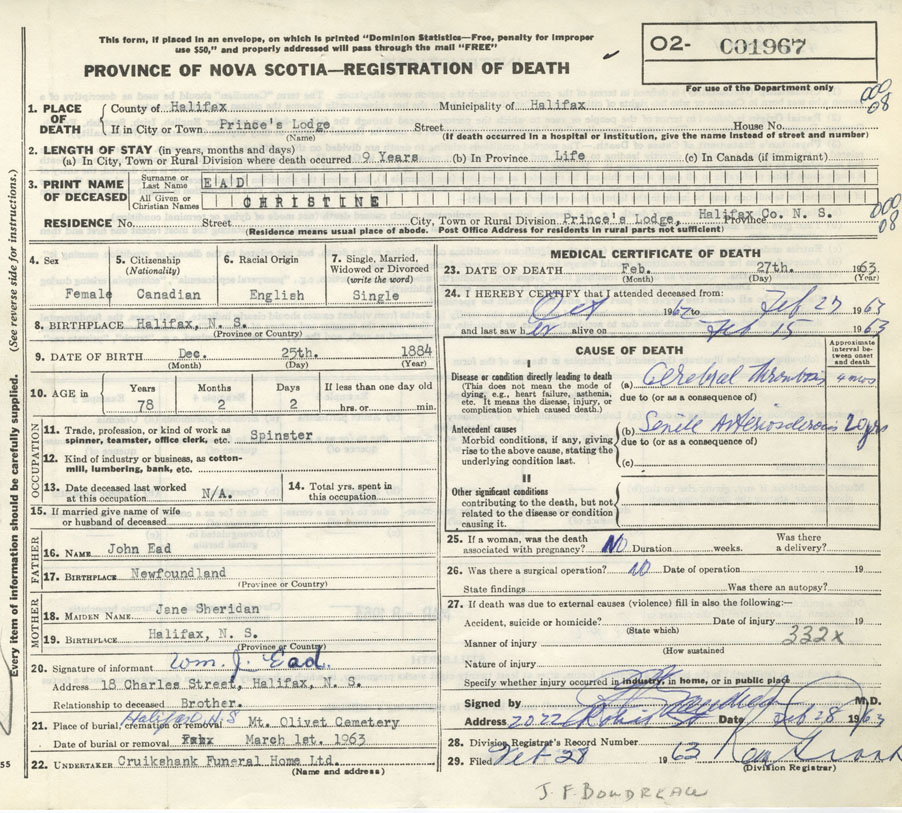 This form, if placed in an envelope, on which is printed "Dominion Statistics—Free, penalty for improper
use $50," and properly addressed will pass through the mail "FREE"
PROVINCE OF NOVA SCOTIA—REGISTRATION OF DEATH
O2- C01967
For use of the Department only
1. PLACE OF DEATH County of Halifax Municipality of Halifax
If in City or Town Prince's Lodge Street House No.
(Name) (If death occurred in a hospital or institution, give the name instead of street and number)
000
08
2. LENGTH OF STAY (in years, months and days)
(a) In City, Town or Rural Division where death occurred 9 Years (b) In Province Life (c) In Canada (if immigrant)
3. PRINT NAME OF DECEASED
Surname or Last Name EAD
All Given or Christian Names CHRISTINE
RESIDENCE No. Street City, Town or Rural Division Prince's Lodge, Halifax Co. N. S. Province
(Residence means usual place of abode. Post Office Address for residents in rural parts not sufficient)
000
08
4. Sex Female
5. Citizenship (Nationality) Canadian
6. Racial Origin English
7. Single, Married, Widowed or Divorced (write the word) Single
8. BIRTHPLACE Halifax, N. S.
(Province or Country)
9. DATE OF BIRTH Dec. 25th. 1884
(Month) (Day) (Year)
10. AGE in Years Months Days If less than one day old
78 2 2 hrs. or min.
OCCUPATION
11. Trade, profession, or kind of work as spinner, teamster, office clerk, etc. Spinster
12. Kind of industry or business, as cotton-mill, lumbering, bank, etc.
13. Date deceased last worked at this occupation N/A.
14. Total yrs. spent in this occupation
15. If married give name of wife or husband of deceased
FATHER
16. NAME John Ead
17. BIRTHPLACE Newfoundland
(Province or Country)
MOTHER
18. MAIDEN NAME Jane Sheridan
19. BIRTHPLACE Halifax, N. S.
(Province or Country)
20. Signature of informant Wm. J. Ead.
Address 18 Charles Street, Halifax, N. S.
Relationship to deceased Brother.
21. Place of burial, cremation or removal Halifax, N.S Mt. Olivet Cemetery
Date of burial or removal March 1st. 1963
22. UNDERTAKER Cruikshank Funeral Home Ltd.
(Name and address)
MEDICAL CERTIFICATE OF DEATH
23. DATE OF DEATH Feb. 27th. 1963
(Month) (Day) (Year)
24. I HEREBY CERTIFY that I attended deceased from:
Oct 1962 to Feb 27 1963
and last saw her alive on Feb 15 1963
CAUSE OF DEATH
Approximate interval between onset and death
I
Disease or condition directly leading to death
(This does not mean the mode of dying, e.g., heart failure, asthenia, etc. It means the disease, injury, or complication which caused death.)
(a) Cerebral Thrombosis 4 mos
due to (or as a consequence of)
Antecedent causes
Morbid conditions, if any, giving rise to the above cause, stating the underlying condition last.
(b) Senile Arteriosclerosis 20 yrs
due to (or as a consequence of)
(c)
II
Other significant conditions
contributing to the death, but not related to the disease or condition causing it.
25. If a woman, was the death associated with pregnancy? NO Duration weeks. Was there a delivery?
26. Was there a surgical operation? NO Date of operation 19
State findings Was there an autopsy?
27. If death was due to external causes (violence) fill in also the following:—
Accident, suicide or homicide? Date of injury 19
(State which)
332x
Manner of injury
(How sustained
Nature of injury
Specify whether injury occurred in industry, in home, or in public place
Signed by M.D.
Address Date Feb 28 1963
28. Division Registrar's Record Number
29. Filed Feb 28 1963
(Division Registrar)
J. F. BOUDREAU
Every item of information should be carefully supplied. (See reverse side for instructions.)
55